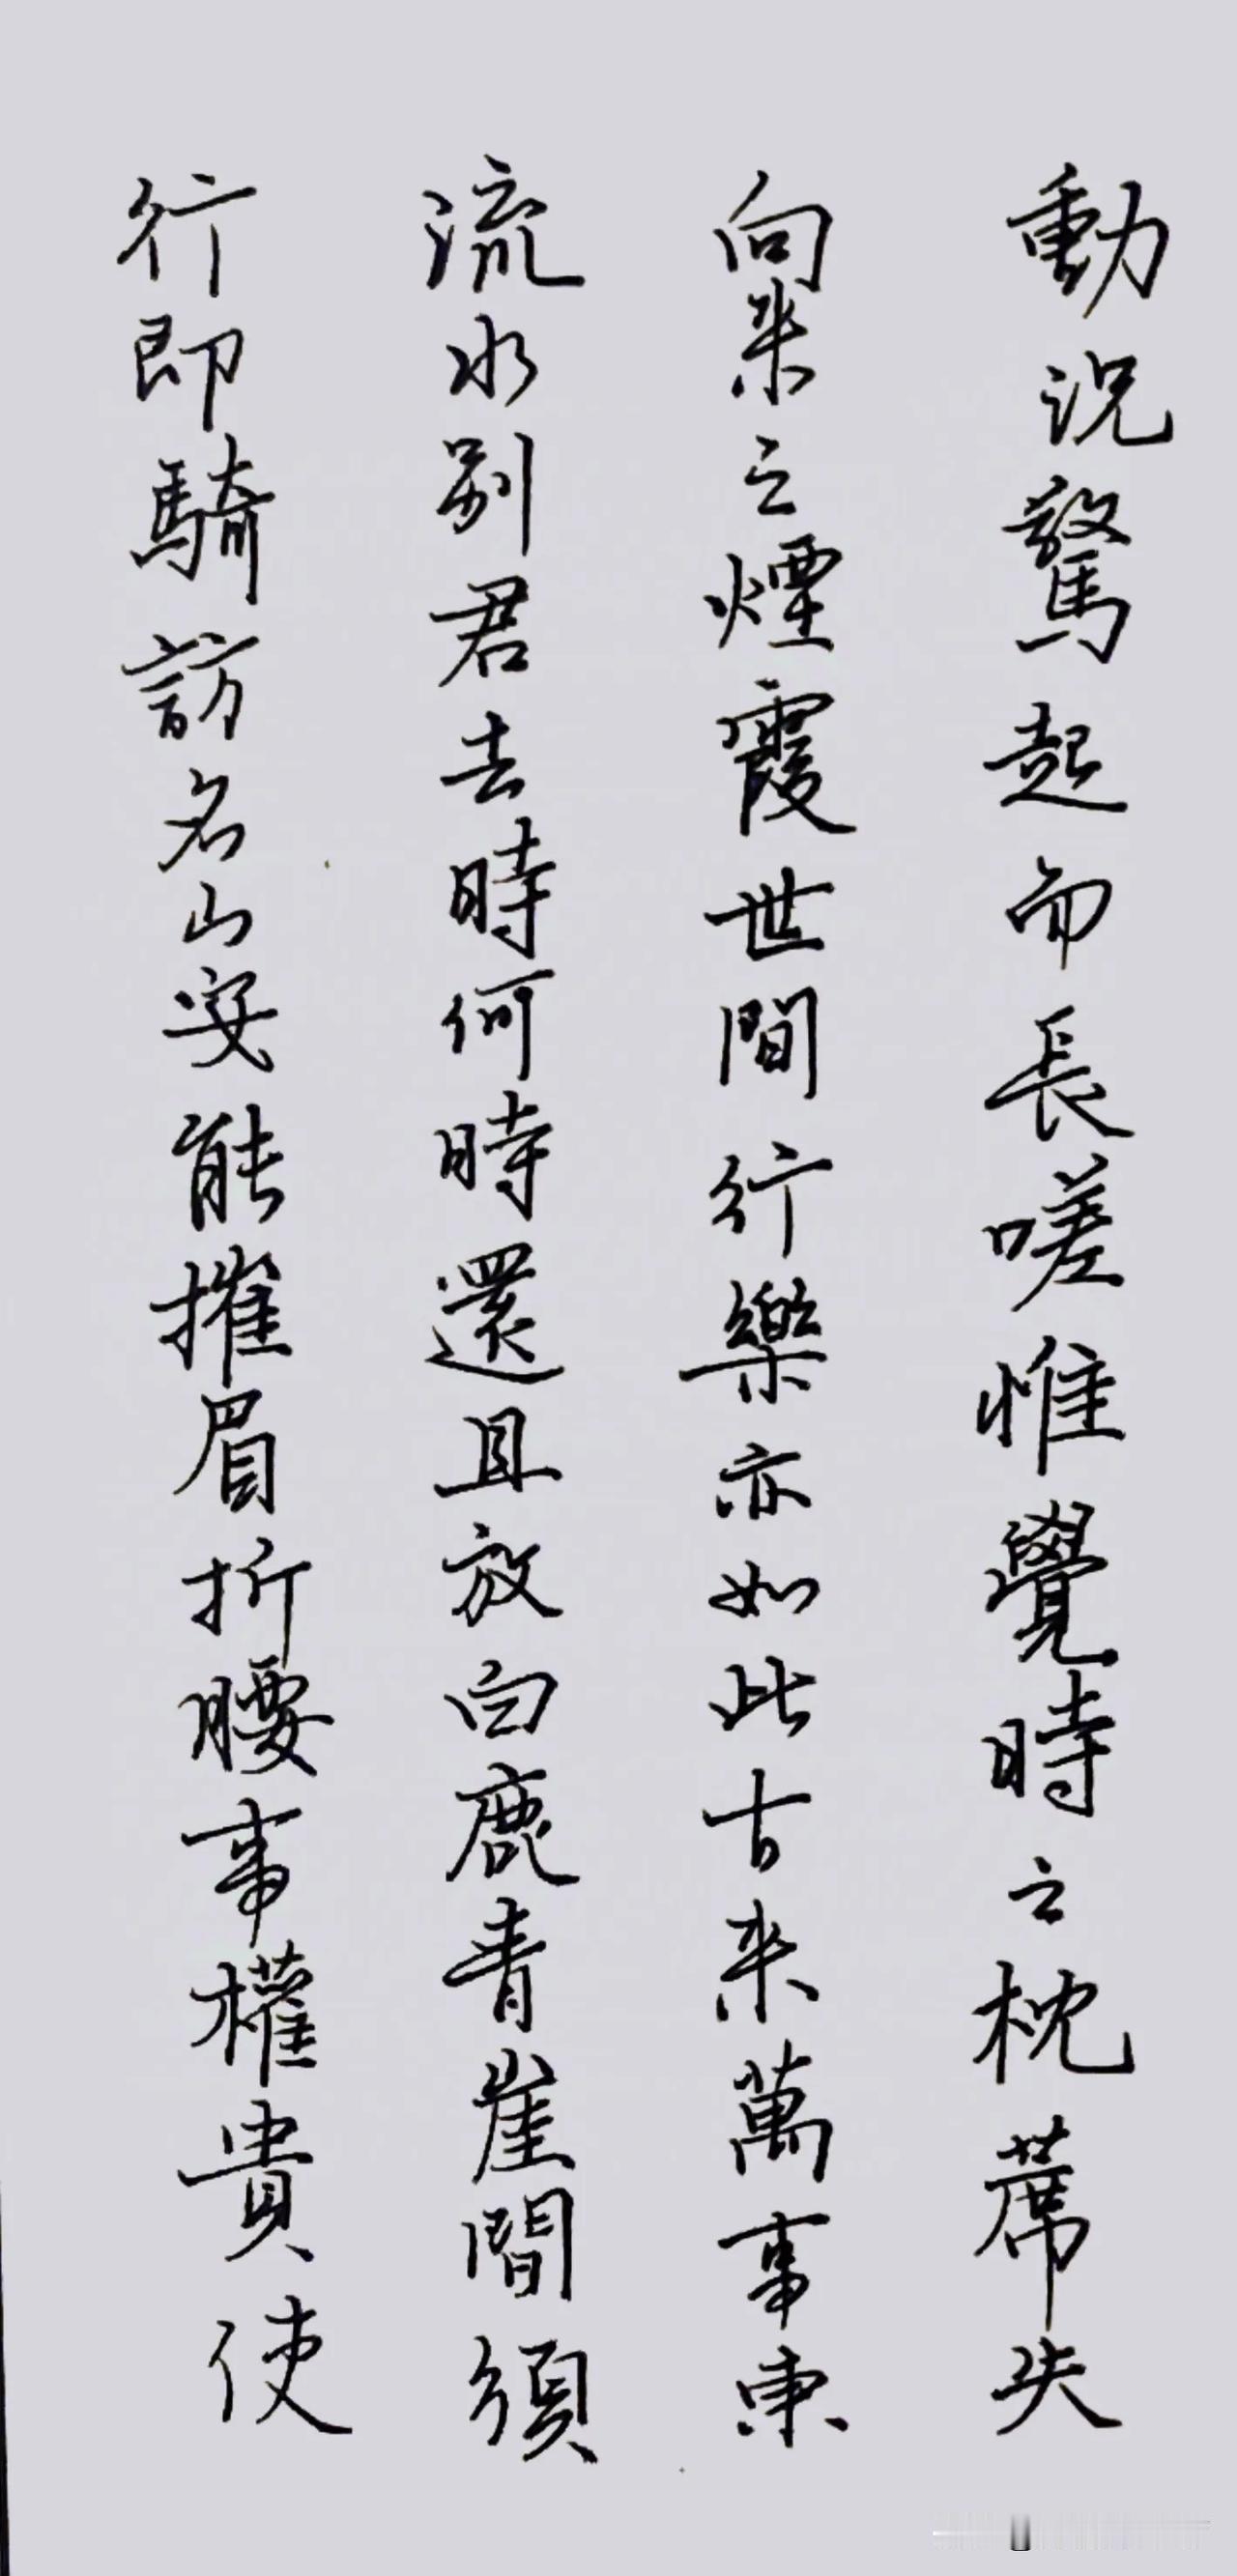 動況驚起而長嗟惟覺時之枕蓆失
向来之煙霞世間行樂亦如此古来萬事東
流水别君去時何時還且放白鹿青崖間須
行即騎訪名山安能摧眉折腰事權貴使